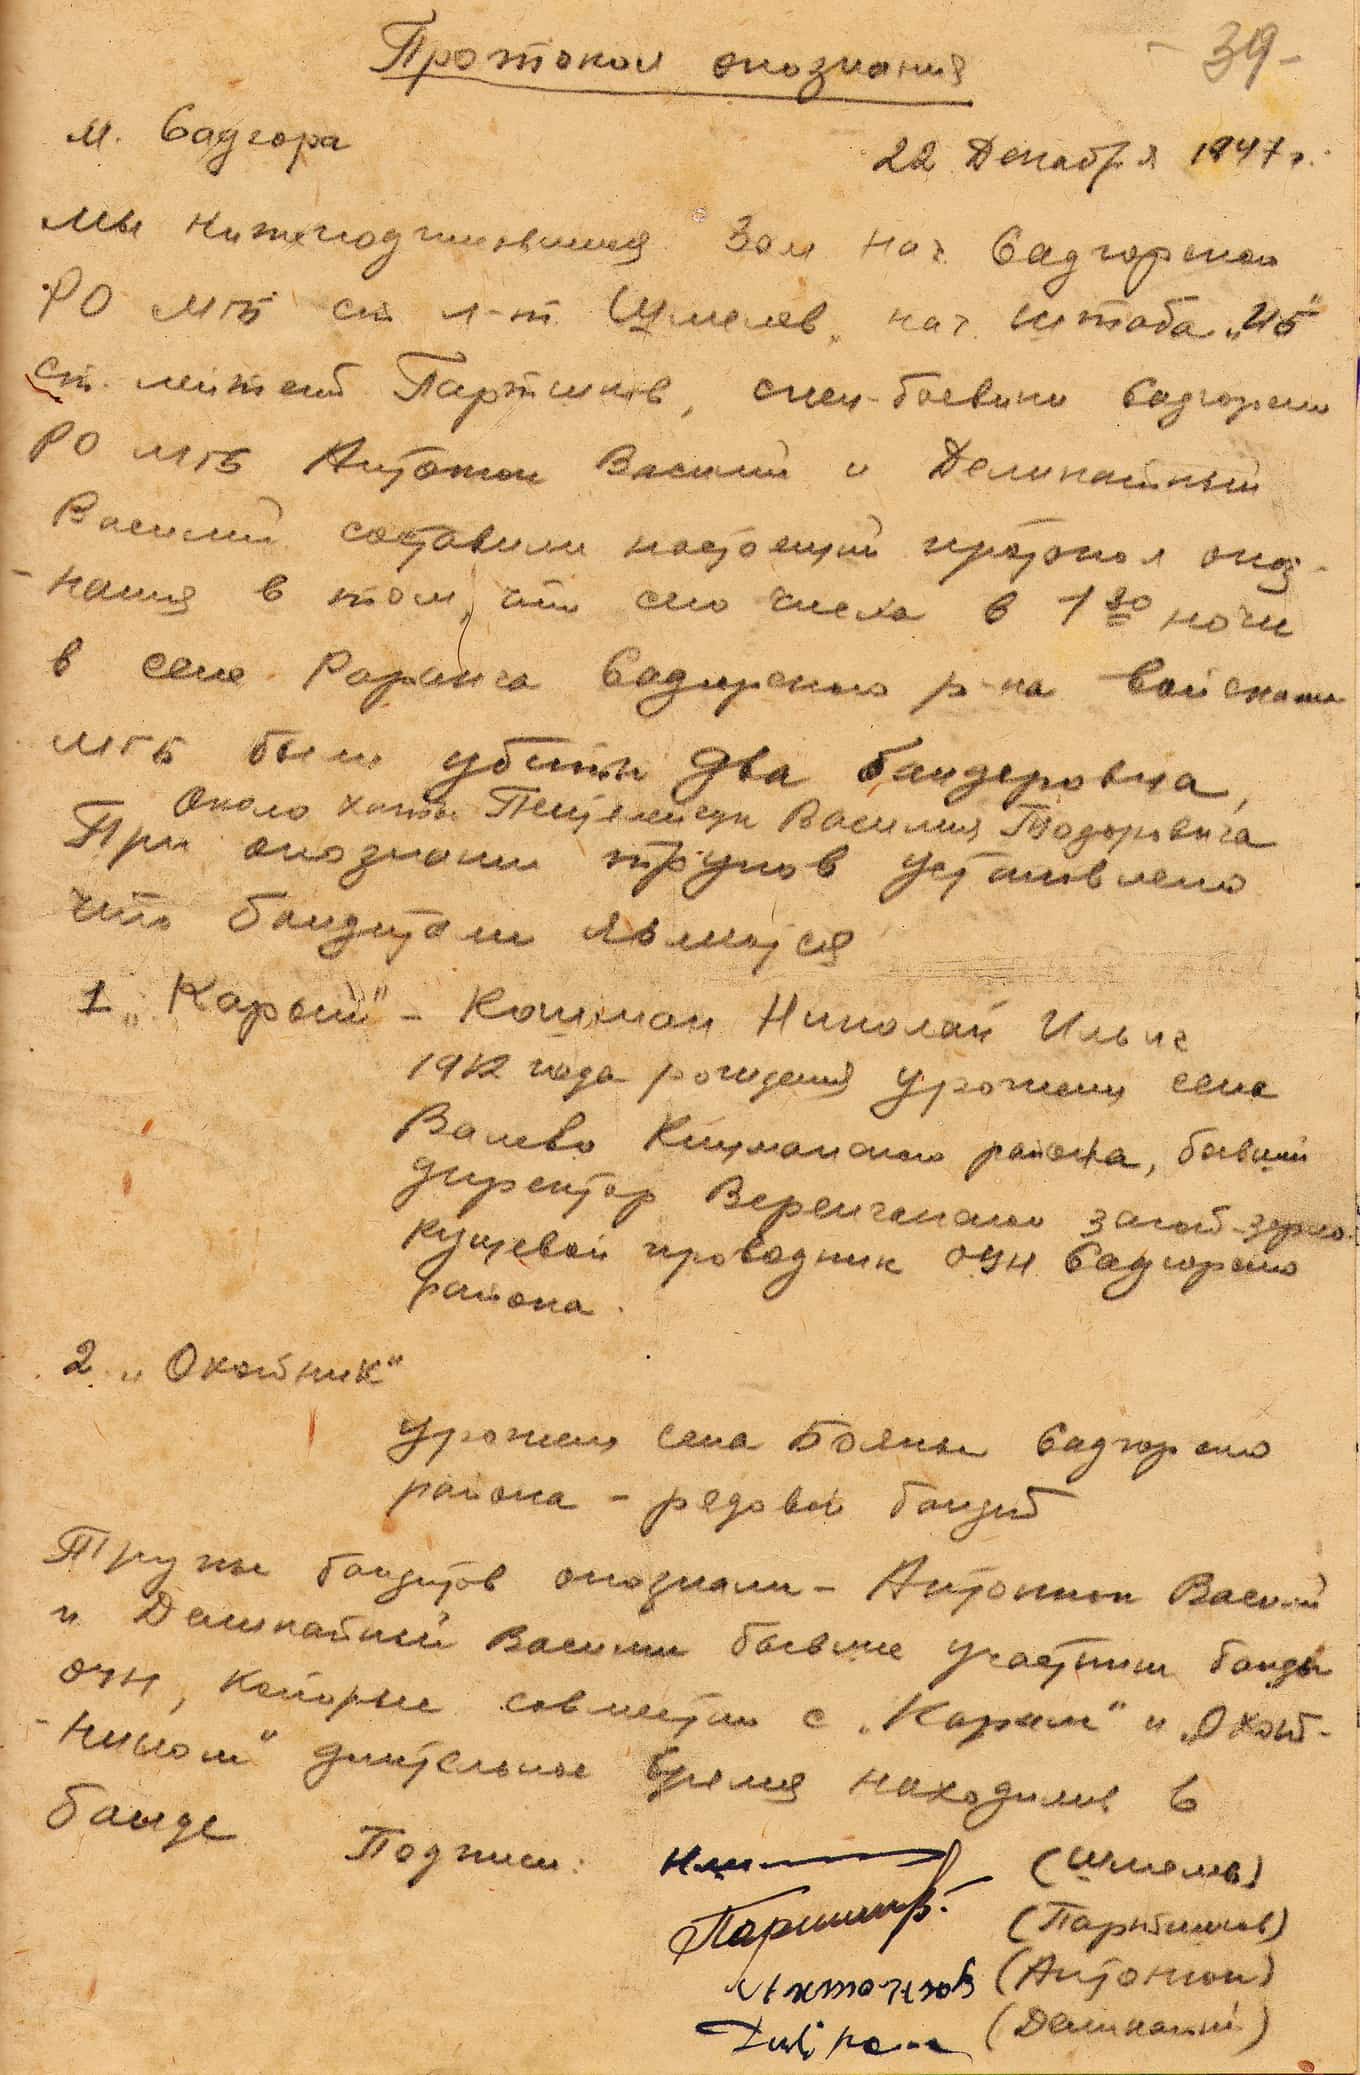 - 39 -
Протокол опознания
м. Садгора
22 Декабря 1947 г.
Мы нижеподписавшиеся Зам нач. Садгорского
РО МГБ ст л-т Шмелев, нач. штаба „ИБ"
ст. лейтенант Партшиков, спец-боевики Садгорского
РО МГБ Антонюк Василий и Деликатный
Василий составили настоящий протокол опоз-
-нания в том, что сего числа в 1 30 ночи
в селе Раранча Садгорского р-на войсками
МГБ были убиты два бандеровца,
около хаты Василия Тодоровича
При опознании трупов установлено
что бандитами являются
1 „Карый" – Кошман Николай Ильич
1912 года рождения уроженец села
Валево Кицманского района, бывший
директор Веренчанского загот-зерно
кущевой проводник ОУН Садгорского
района.
2 „Охотник"
уроженец села Бояны Садгорского
района – рядовой бандит
Трупы бандитов опознали – Антонюк Василий
и Деликатный Василий бывшие участники банды
ОУН, которые совместно с „Карым" и „Охот-
-ником" длительное время находились в
банде
Подписи:
(Шмелев)
(Партшиков)
Антонюк (Антонюк)
(Деликатный)